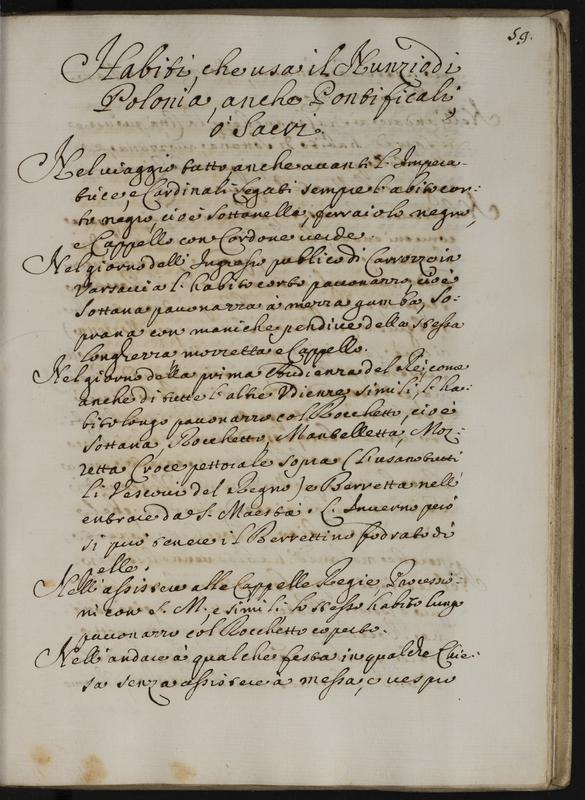 59.
Habiti, che usa il Nunzio di
Polonia, anche Pontificali,
ò Sacri.
Nel viaggio tutto, anche avanti l'Impera-
trice, e Cardinali Legati sempre l'abito cor-
to negro, cioè sottanella, ferraiolo negro,
e Cappello con Cordone verde.
Nel giorno dell' Ingresso publico di Carrozza in
Varsavia l'habito corto pavonazzo, cioè
Sottana pavonazza à mezza gamba, So-
prana con maniche pendive della stessa
longhezza mozzetta e Cappello.
Nel giorno della prima Audienza del Rè, come
anche di tutte l'altre Udienze simili, l'ha-
bito longo pavonazzo col Rocchetto, cioè
Sottana, Rocchetto, Mantelletta, Moz-
zetta Croce pettorale sopra (l'usano tutti
li Vescovi del Regno) e Berretta nell'
entrare da S. Maestà. L'Inverno però
si può tenere il Berrettino fodrato di
elle.
Nell' assistere alle Cappelle Regie, Processio-
ni con S. M., e simili lo stesso habito lungo
pavonazzo col Rocchetto coperto.
Nell' andare à qualche festa in qualche Chie-
sa senza assistere à messa, ò vespro